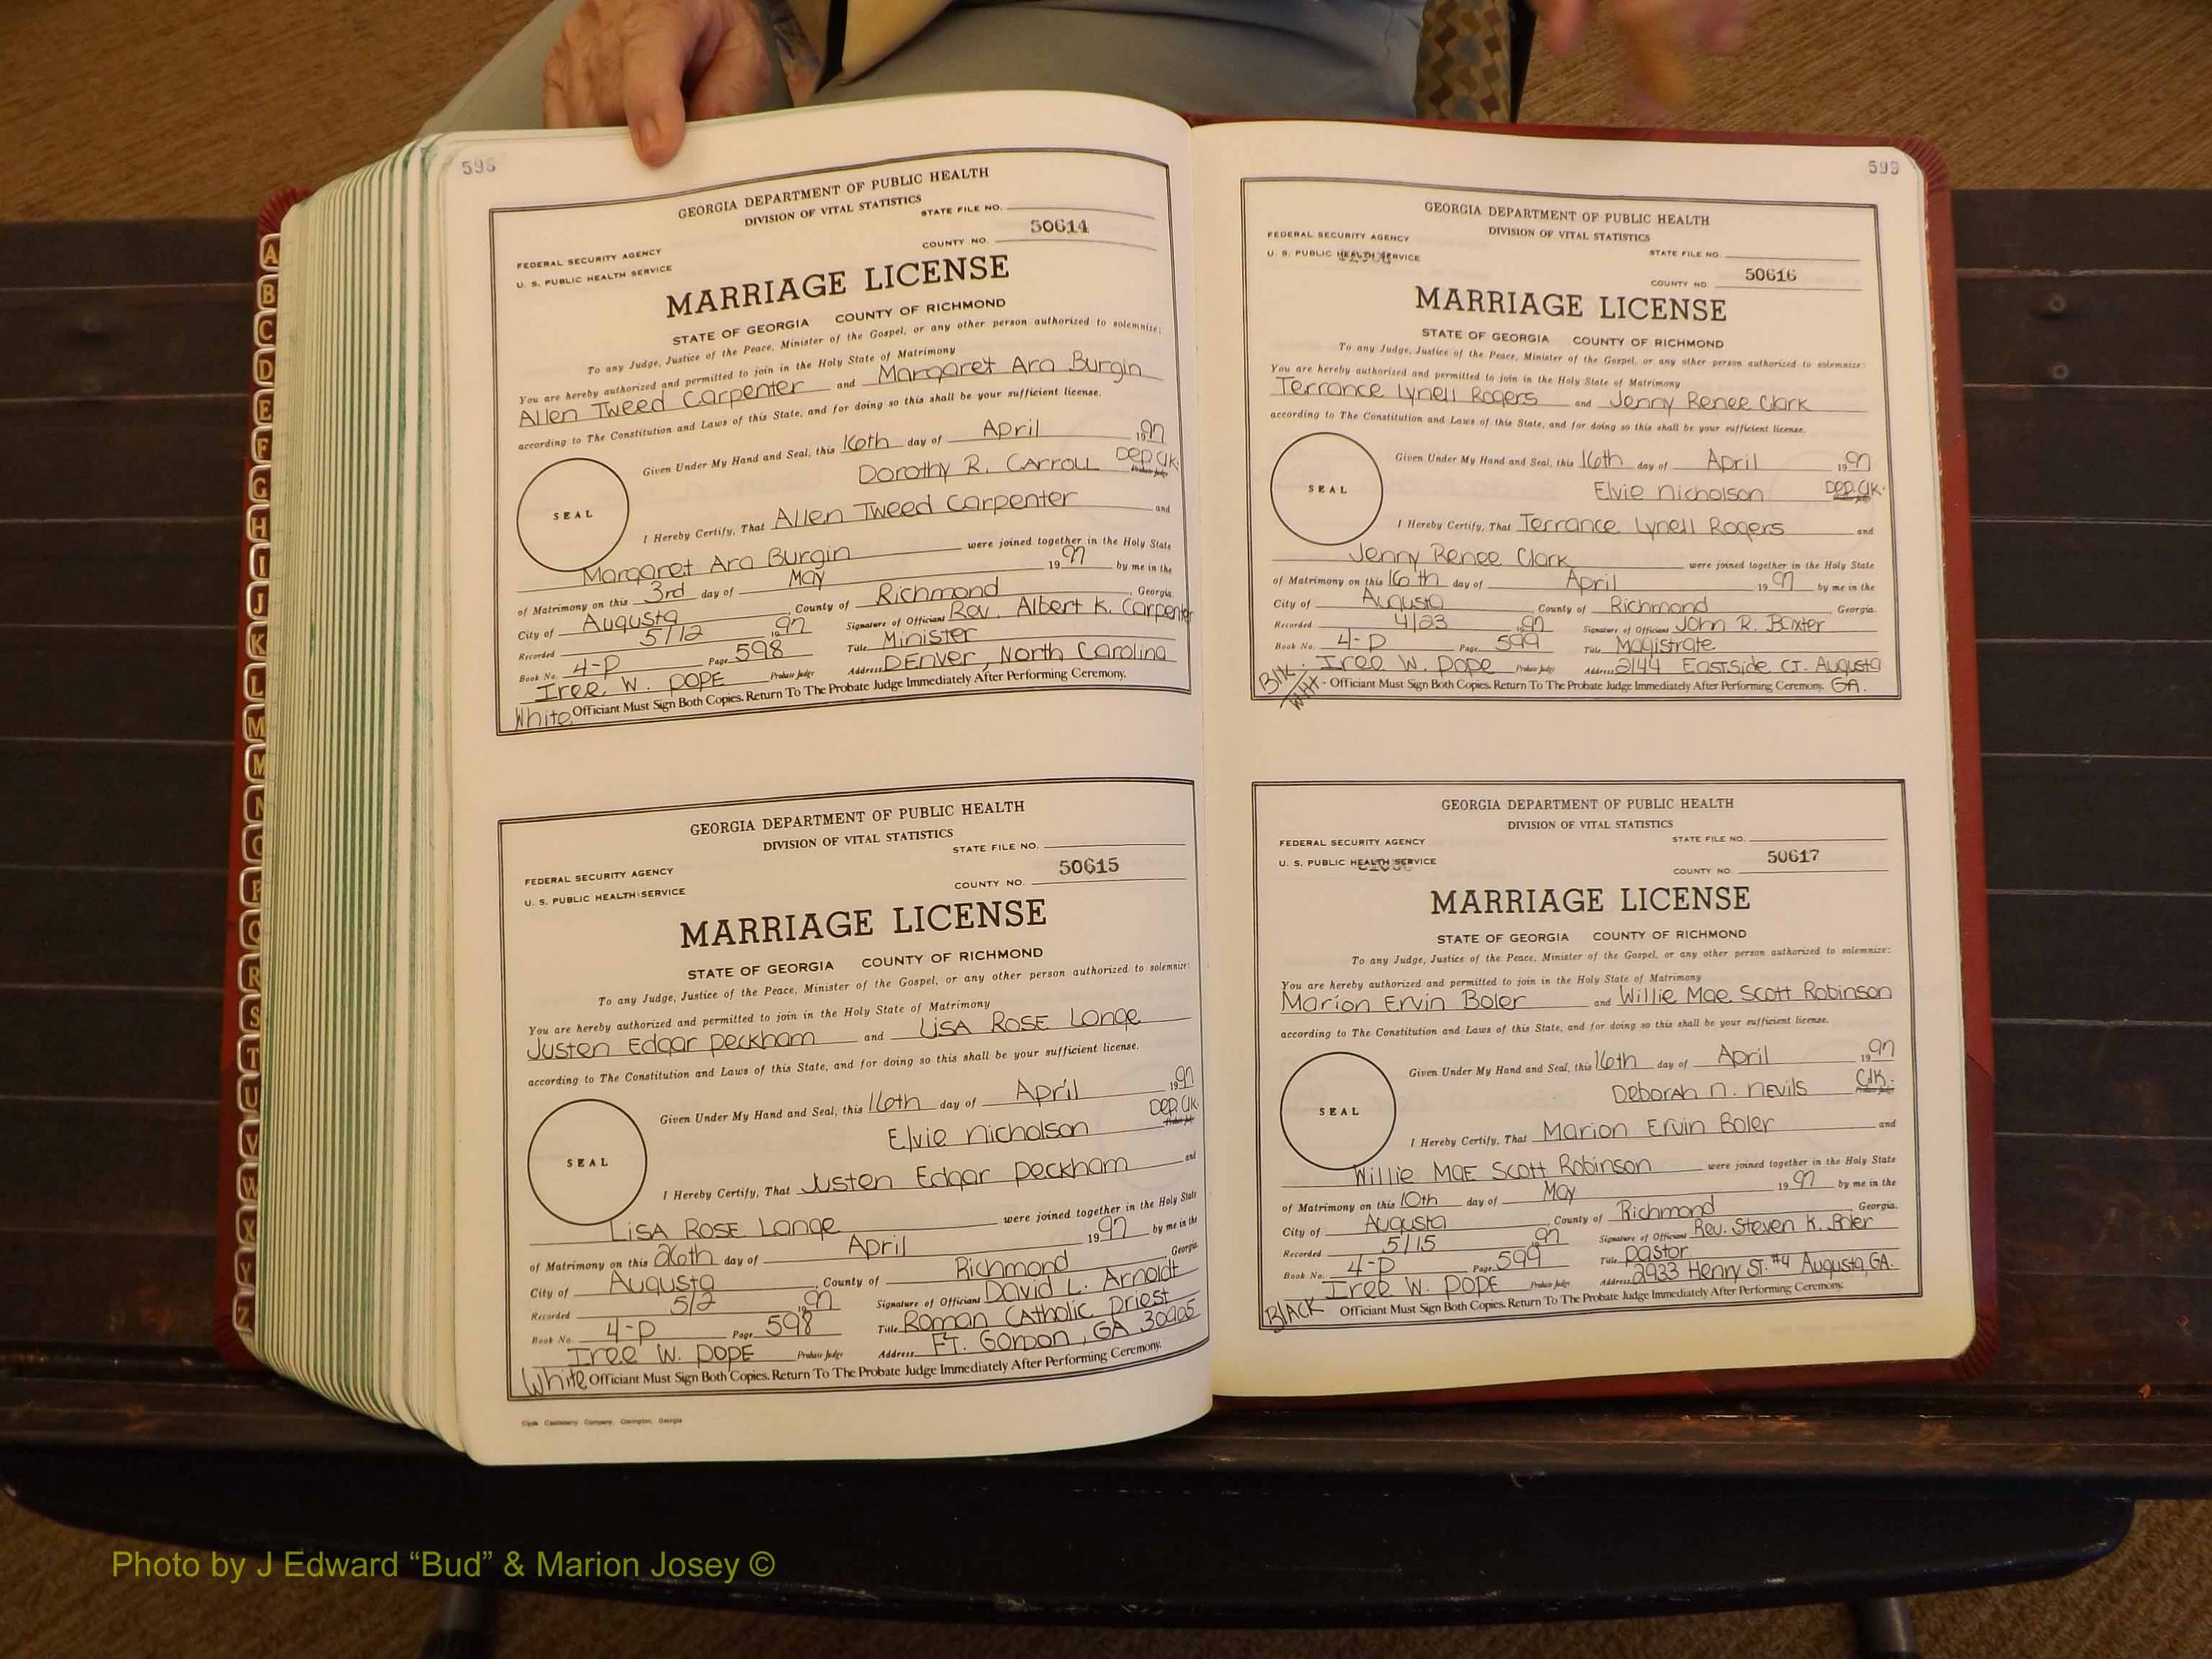 598
GEORGIA DEPARTMENT OF PUBLIC HEALTH
DIVISION OF VITAL STATISTICS
STATE FILE NO.
FEDERAL SECURITY AGENCY
U. S. PUBLIC HEALTH SERVICE
COUNTY NO. 50614
MARRIAGE LICENSE
STATE OF GEORGIA COUNTY OF RICHMOND
To any Judge, Justice of the Peace, Minister of the Gospel, or any other person authorized to solemnize:
You are hereby authorized and permitted to join in the Holy State of Matrimony
Allen Tweed Carpenter and Margaret Ara Burgin
according to The Constitution and Laws of this State, and for doing so this shall be your sufficient license.
Given Under My Hand and Seal, this 16th day of April 1997
Dorothy R. Carroll Dep. Clk.
SEAL
I Hereby Certify, That Allen Tweed Carpenter and
Margaret Ara Burgin were joined together in the Holy State
of Matrimony on this 3rd day of May 1997 by me in the
City of Augusta, County of Richmond, Georgia.
Recorded 5/12 1997 Signature of Officiant Rev. Albert K. Carpenter
Book No. 4-P Page 598 Title Minister
Iree W. Pope Probate Judge Address Denver, North Carolina
White Officiant Must Sign Both Copies. Return To The Probate Judge Immediately After Performing Ceremony.
GEORGIA DEPARTMENT OF PUBLIC HEALTH
DIVISION OF VITAL STATISTICS
STATE FILE NO.
FEDERAL SECURITY AGENCY
U. S. PUBLIC HEALTH SERVICE
COUNTY NO. 50615
MARRIAGE LICENSE
STATE OF GEORGIA COUNTY OF RICHMOND
To any Judge, Justice of the Peace, Minister of the Gospel, or any other person authorized to solemnize:
You are hereby authorized and permitted to join in the Holy State of Matrimony
Justen Edgar Peckham and Lisa Rose Lange
according to The Constitution and Laws of this State, and for doing so this shall be your sufficient license.
Given Under My Hand and Seal, this 16th day of April 1997
Elvie Nicholson Dep. Clk.
SEAL
I Hereby Certify, That Justen Edgar Peckham and
Lisa Rose Lange were joined together in the Holy State
of Matrimony on this 26th day of April 1997 by me in the
City of Augusta, County of Richmond, Georgia.
Recorded 5/2 1997 Signature of Officiant David L. Arnoldt
Book No. 4-P Page 598 Title Roman Catholic Priest
Iree W. Pope Probate Judge Address Ft. Gordon, GA 30905
White Officiant Must Sign Both Copies. Return To The Probate Judge Immediately After Performing Ceremony.
Clyde Castleberry Company, Covington, Georgia
599
GEORGIA DEPARTMENT OF PUBLIC HEALTH
DIVISION OF VITAL STATISTICS
FEDERAL SECURITY AGENCY
U. S. PUBLIC HEALTH SERVICE
STATE FILE NO.
COUNTY NO. 50616
MARRIAGE LICENSE
STATE OF GEORGIA COUNTY OF RICHMOND
To any Judge, Justice of the Peace, Minister of the Gospel, or any other person authorized to solemnize:
You are hereby authorized and permitted to join in the Holy State of Matrimony
Terrance Lynell Rogers and Jenny Renee Clark
according to The Constitution and Laws of this State, and for doing so this shall be your sufficient license.
Given Under My Hand and Seal, this 16th day of April 1997
Elvie Nicholson Dep. Clk.
SEAL
I Hereby Certify, That Terrance Lynell Rogers and
Jenny Renee Clark were joined together in the Holy State
of Matrimony on this 16th day of April 1997 by me in the
City of Augusta, County of Richmond Georgia.
Recorded 4/23 1997 Signature of Officiant John R. Baxter
Book No. 4-P Page 599 Title Magistrate
Iree W. Pope Probate Judge Address 2144 Eastside Ct. Augusta
Blk. / Wht - Officiant Must Sign Both Copies. Return To The Probate Judge Immediately After Performing Ceremony. GA.
GEORGIA DEPARTMENT OF PUBLIC HEALTH
DIVISION OF VITAL STATISTICS
FEDERAL SECURITY AGENCY
U. S. PUBLIC HEALTH SERVICE
STATE FILE NO.
COUNTY NO. 50617
MARRIAGE LICENSE
STATE OF GEORGIA COUNTY OF RICHMOND
To any Judge, Justice of the Peace, Minister of the Gospel, or any other person authorized to solemnize:
You are hereby authorized and permitted to join in the Holy State of Matrimony
Marion Ervin Boler and Willie Mae Scott Robinson
according to The Constitution and Laws of this State, and for doing so this shall be your sufficient license.
Given Under My Hand and Seal, this 16th day of April 1997
Deborah N. Nevils Clk.
SEAL
I Hereby Certify, That Marion Ervin Boler and
Willie Mae Scott Robinson were joined together in the Holy State
of Matrimony on this 10th day of May 1997 by me in the
City of Augusta, County of Richmond, Georgia.
Recorded 5/15 1997 Signature of Officiant Rev. Steven K. Boler
Book No. 4-P Page 599 Title Pastor
Iree W. Pope Probate Judge Address 2933 Henry St. #4 Augusta, GA.
BLACK Officiant Must Sign Both Copies. Return To The Probate Judge Immediately After Performing Ceremony.
A
B
C
D
E
F
G
H
I
J
K
L
M
M
N
O
P
Q
R
S
T
U
V
W
X
Y
Z
Photo by J Edward “Bud” & Marion Josey ©